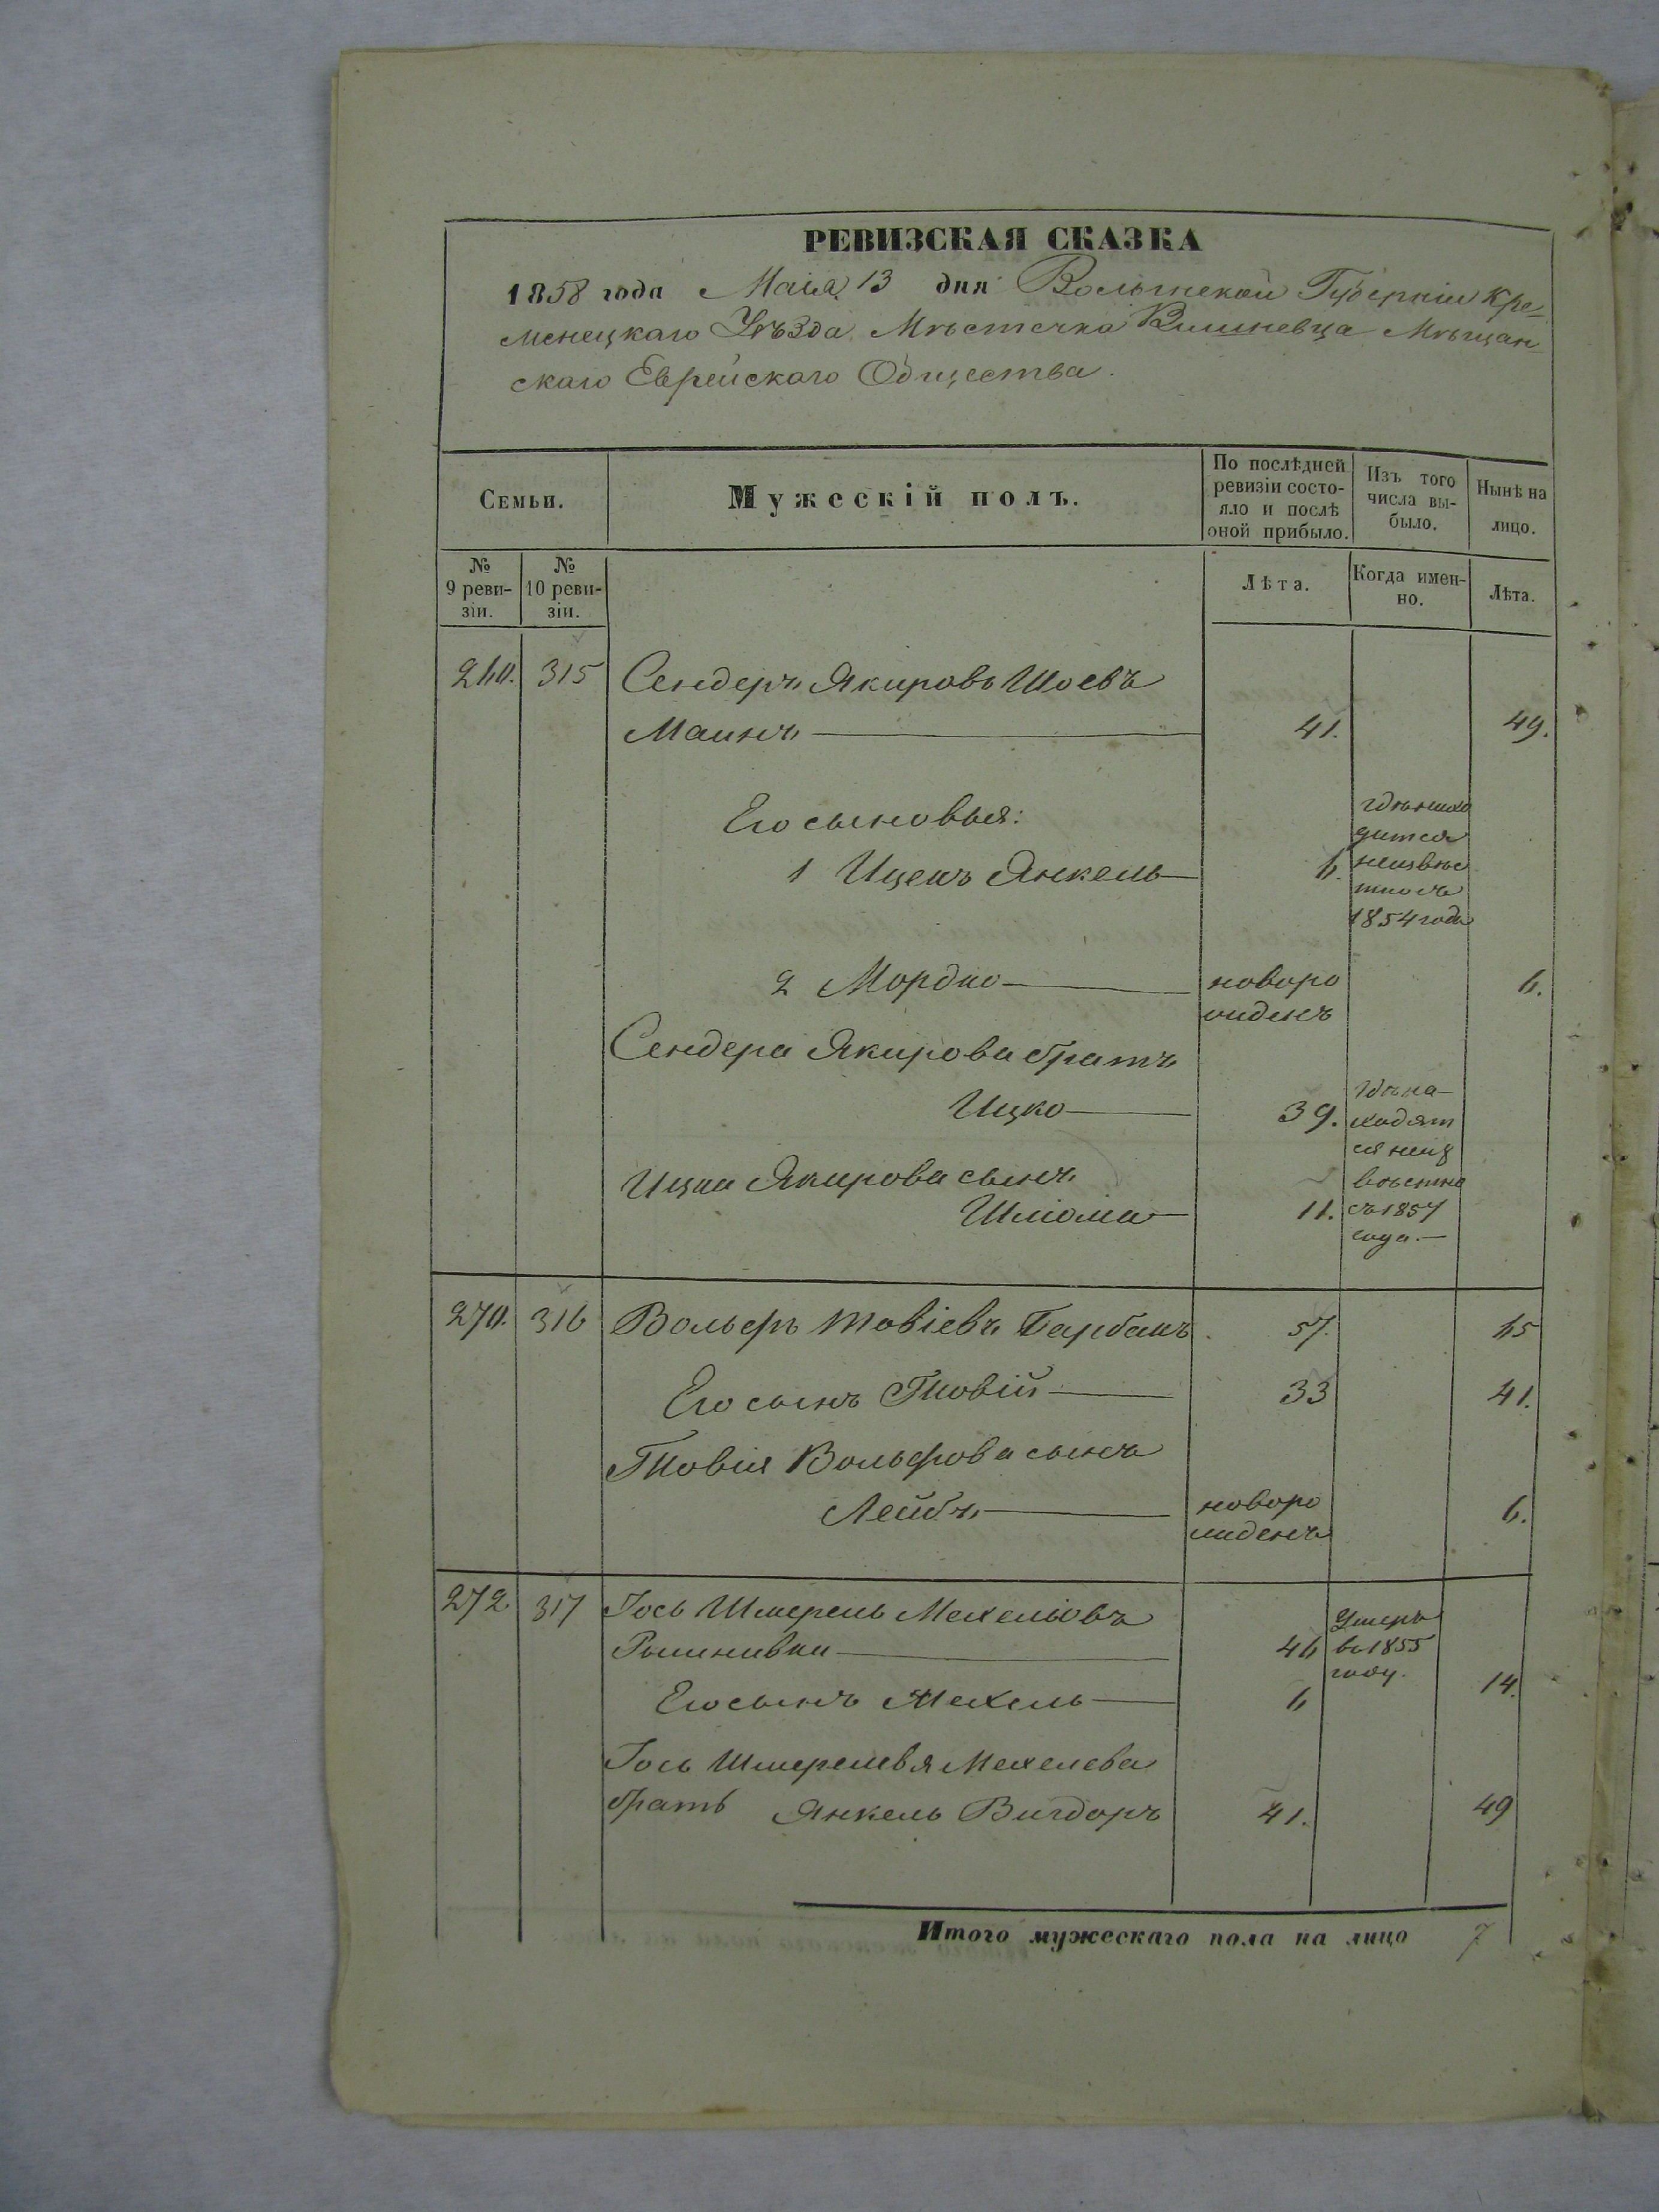 РЕВИЗСКАЯ СКАЗКА
1858 года Маія 13 дня Волынской Губерніи Кре-
менецкаго Уѣзда Мѣстечка Вишневца Мѣщан
скаго Еврейскаго Общества.
Семьи.
Мужескій полъ.
По послѣдней
ревизіи состо-
яло и послѣ
оной прибыло.
Изъ того
числа вы-
было.
Нынѣ на
лицо.
№
9 реви-
зіи.
№
10 реви-
зіи.
Лѣта.
Когда имен-
но.
Лѣта.
315 Сендеръ Якировъ Шоевъ
41. 49.
Его сыновья:
1 Ицекъ Янкель 6. гдѣ нахо
дится
неизвѣс
тно съ
1854 года
2 Мордко новоро 6.
жденъ
Сендера Якирова братъ
Ицко 39. гдѣ на-
ходят
ся неиз
вѣстно
съ 1857
года.
Ицка Якирова сынъ
Шліома 11.
270. 316 Вольфъ Товіевъ Барбакъ 57. 65
Его сынъ Товій 33 41.
Товія Вольфова сынъ
Лейбъ новоро 6.
жденъ
272 317 Іось Шмерель Мехельовъ
46 Умеръ
въ 1855
году.
Его сынъ Мехель 6 14.
Іось Шмерельвя Мехелева
братъ Янкель Вигдоръ 41. 49
Итого мужескаго пола на лицо 7